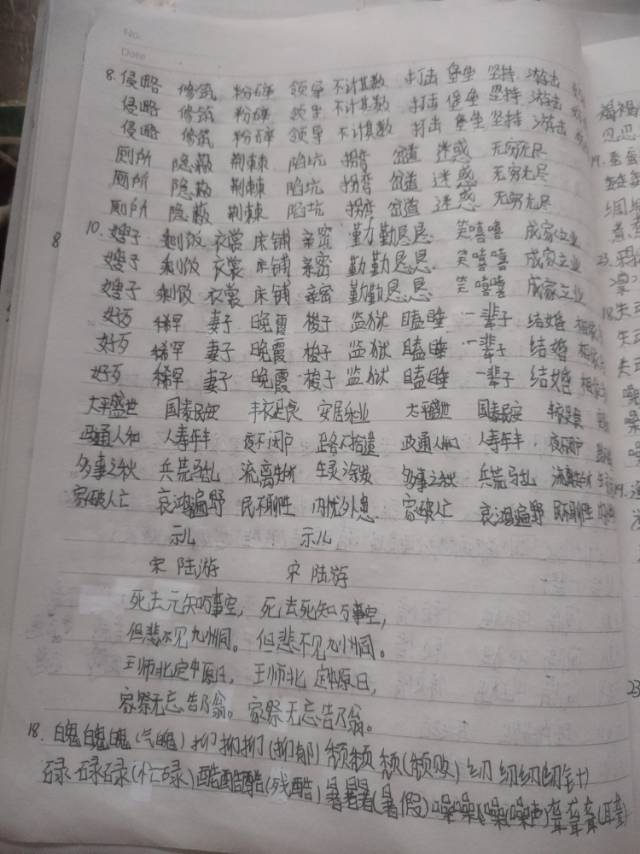 No.
Date
8. 侵略 修筑 粉碎 领导 不计其数 打击 堡垒 坚持 游击
侵略 修筑 粉碎 领导 不计其数 打击 堡垒 坚持 游击
侵略 修筑 粉碎 领导 不计其数 打击 堡垒 坚持 游击
厕所 隐蔽 荆棘 陷坑 拐弯 岔道 迷惑 无穷无尽
厕所 隐蔽 荆棘 陷坑 拐弯 岔道 迷惑 无穷无尽
厕所 隐蔽 荆棘 陷坑 拐弯 岔道 迷惑 无穷无尽
10. 嫂子 剩饭 衣裳 床铺 亲密 勤勤恳恳 笑嘻嘻 成家立业
8
嫂子 剩饭 衣裳 床铺 亲密 勤勤恳恳 笑嘻嘻 成家立业
嫂子 剩饭 衣裳 床铺 亲密 勤勤恳恳 笑嘻嘻 成家立业
好歹 稀罕 妻子 晚霞 梭子 监狱 瞌睡 一辈子 结婚
好歹 稀罕 妻子 晚霞 梭子 监狱 瞌睡 一辈子 结婚
好歹 稀罕 妻子 晚霞 梭子 监狱 瞌睡 一辈子 结婚
太平盛世 国泰民安 丰衣足食 安居乐业 太平盛世 国泰民安 丰衣足食
政通人和 人寿年丰 夜不闭户 路不拾遗 政通人和 人寿年丰 夜不闭户
多事之秋 兵荒马乱 流离失所 生灵涂炭 多事之秋 兵荒马乱 流离失所
家破人亡 哀鸿遍野 民不聊生 内忧外患 家破人亡 哀鸿遍野 民不聊生
示儿 示儿
宋 陆游 宋 陆游
死去元知万事空，死去死知万事空，
但悲不见九州同。但悲不见九州同。
王师北定中原日，王师北定中原日，
家祭无忘告乃翁。家祭无忘告乃翁。
18. 魄魄魄(气魄) 抑抑抑(抑郁) 颓颓颓(颓败) 纫纫纫(纫针)
碌碌碌(忙碌) 酷酷酷(残酷) 暑暑暑(暑假) 噪噪噪(噪声) 聋聋聋(耳聋)